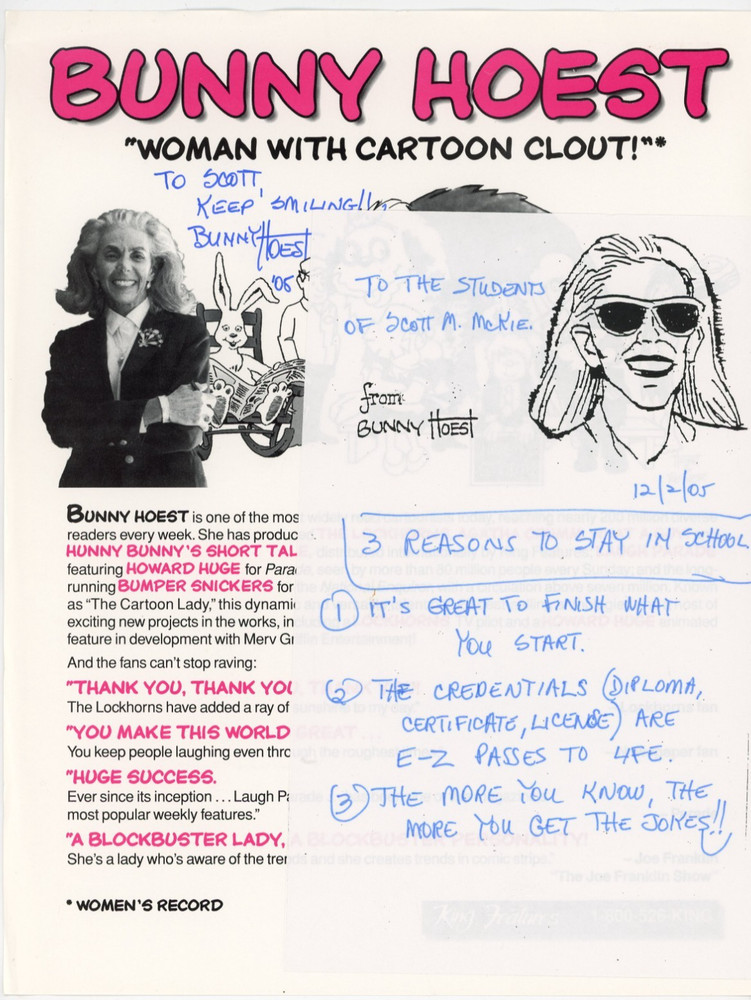 BUNNY HOEST
"WOMAN WITH CARTOON CLOUT!"*
TO SCOTT,
KEEP SMILING!!,
BUNNY HOEST
'05
TO THE STUDENTS
OF SCOTT M. McKIE.
from
BUNNY HOEST
12/2/05
3 REASONS TO STAY IN SCHOOL
① IT'S GREAT TO FINISH WHAT
YOU START.
② THE CREDENTIALS (DIPLOMA,
CERTIFICATE, LICENSE) ARE
E-Z PASSES TO LIFE.
③ THE MORE YOU KNOW, THE
MORE YOU GET THE JOKES!!
BUNNY HOEST is one of the mos
readers every week. She has produc
HUNNY BUNNY'S SHORT TAL
featuring HOWARD HUGE for Para
running BUMPER SNICKERS for
as "The Cartoon Lady," this dynami
exciting new projects in the works, in
feature in development with Merv Gr
And the fans can't stop raving:
"THANK YOU, THANK YOU
The Lockhorns have added a ray of
"YOU MAKE THIS WORLD
You keep people laughing even thro
"HUGE SUCCESS.
Ever since its inception ... Laugh Pa
most popular weekly features."
"A BLOCKBUSTER LADY, A BLOCKBUSTER PERSONALITY!
She's a lady who's aware of the trends and she creates trends in comic strips."
– Joe Franklin
"The Joe Franklin Show"
* WOMEN'S RECORD